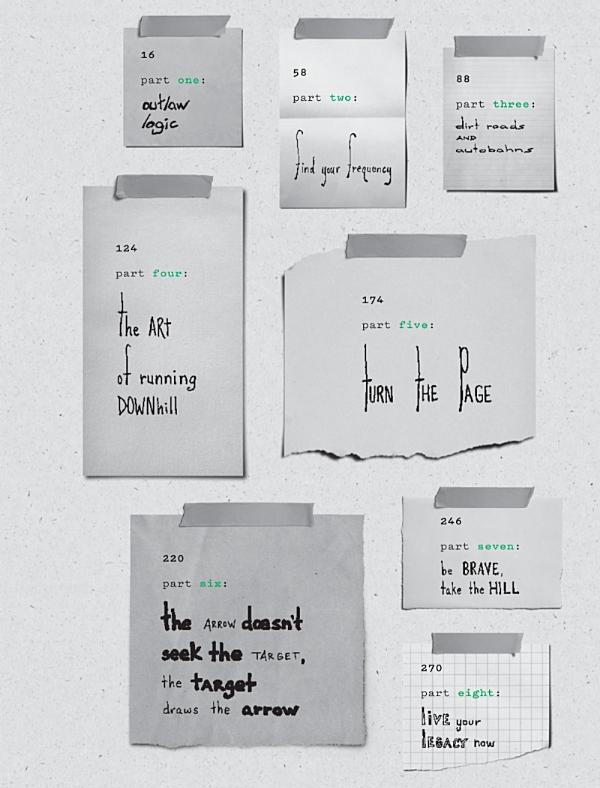 16
part one:
outlaw
logic
58
part two:
find your frequency
88
part three:
dirt roads
AND
autobahns
124
part four:
the ART
of running
DOWNhill
174
part five:
TURN THE PAGE
220
part six:
the ARROW doesn't
seek the TARGET,
the target
draws the arrow
246
part seven:
be BRAVE,
take the HILL
270
part eight:
LIVE your
LEGACY now